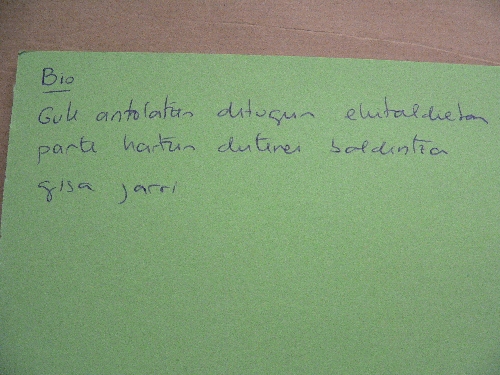 Bio
Guk antolatzen ditugun ekitaldietan
parte hartzen dutenei baldintza
gisa jarri